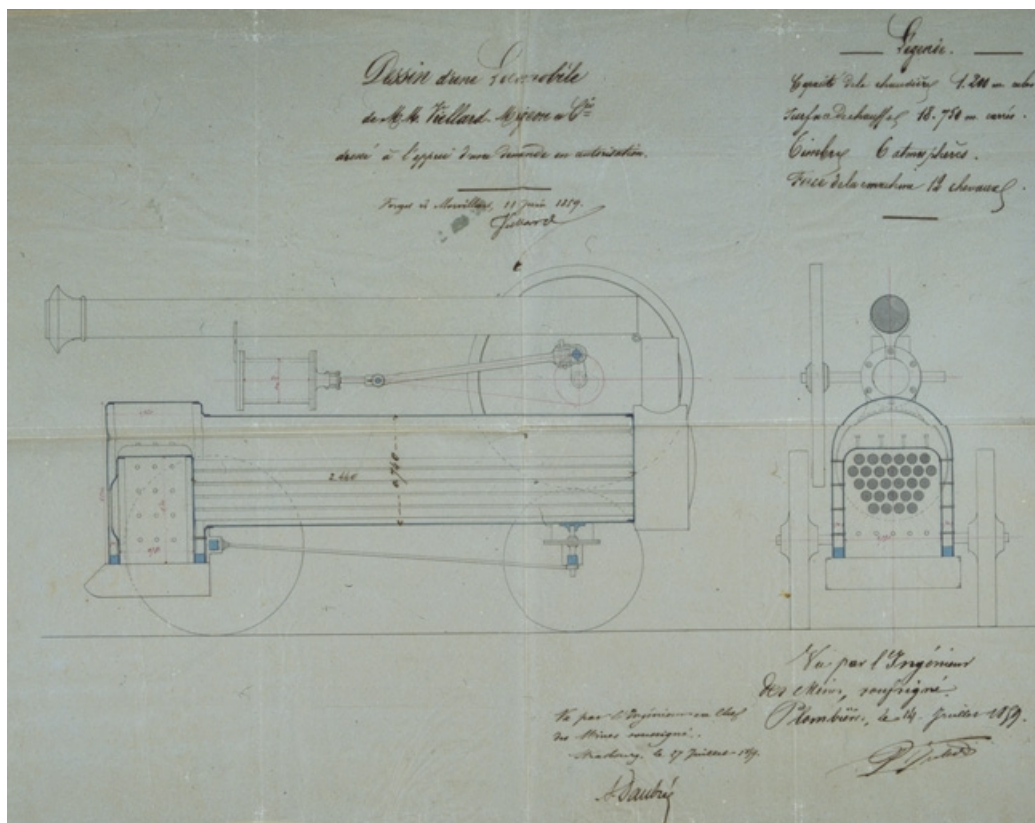 Dessin d'une Locomobile
de MM. Viellard-Migeon & Cie
dressé à l'appui d'une demande en autorisation.
Forges de Morvillars, 11 Juin 1859.
Viellard
Légende.
Capacité de la chaudière 1.200 m. cube
Surface de chauffe 18.750 m. carrés.
Timbre 6 atmosphères.
Force de la machine 12 chevaux
2.440
0.740
Vu par l'Ingénieur
des Mines, soussigné.
Plombières, le 14 Juillet 1859.
Vu par l'Ingénieur en Chef
des Mines soussigné.
Strasbourg, le 27 Juillet 1859.
Daubrée